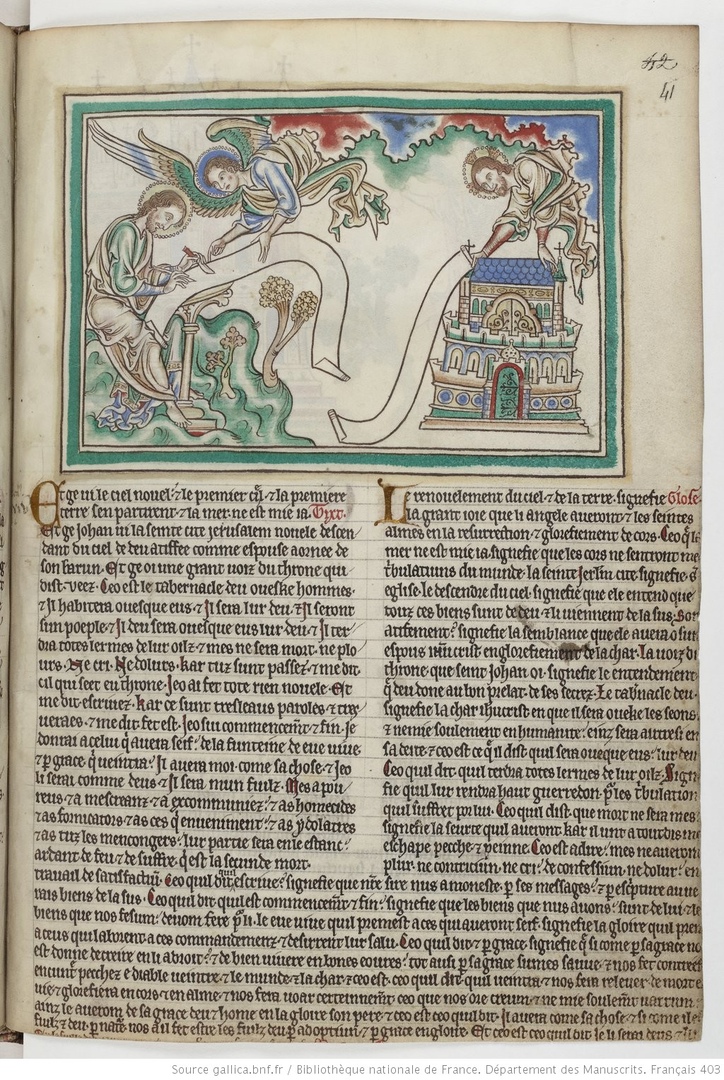 52
41
Et ge vi le ciel novel ⁊ le premier
terre sen partirent ⁊ la mer ne est mie ia. Text.
Et ge Johan vi la seinte cite jerusalem novele descen
dant du ciel de deu atiffee comme espouse aornee de
son barun. Et ge oi une grant voiz du throne qui
dist. veez. Ceo est le tabernacle deu oveske hommes.
⁊ Il habitera ovesque eus ⁊ Il sera lur deu ⁊ Il seront
sun poeple ⁊ Il deu sera ovesque eus lur deu ⁊ Il ter
dra totes lermes de lur oilz ⁊ mes ne sera mort. ne plo
urs. Ne cri. Ne dolurs. kar tuz sunt passez. ⁊ me dit
cil qui seet en throne. Jeo ai fet tote rien novele. Et
me dit. escrivez. kar ce sunt paroles ⁊ tres
veraes. ⁊ me dit. fet est. Jeo sui ⁊ fin. Je
donrai a celui q̃ avera seif. de la funteine de eve vive
⁊ p grace q̃ veintra. Il avera moi come sa chose ⁊ Jeo
li serai comme deus ⁊ Il sera mun fiulz. Mes a pou
reus ⁊ a mescreanz ⁊ a excommuniez ⁊ as homecides
⁊ as fornicators ⁊ as ces q̃ enveniment ⁊ as ydolatres
⁊ as tuz les mencongers. lur partie sera en le estanc
ardant de feu ⁊ de suffre. q̃ est la secunde mort.
Le renouelement du ciel ⁊ de la terre. signefie Glose.
la grant ioie que li angele averont ⁊ les seintes
almes en la resurrection ⁊ glorifiement de cors. Ceo q̃ la
mer ne est mie ia. signefie que les cors ne sentiront me
tribulatiuns du munde. la seinte Jerl̃m cite signefie
eglise. le descendre du ciel. signefie que ele entend que
touz ces biens sunt de deu ⁊ li viennent de la sus. Son
atiffement. signefie la semblance que ele avera o sun
espous en glorefiement de la char. La voiz du
throne que seint Johan oi. signefie le entendement
q̃ deu done au bon prelat. de ses secrez. Le tabnacle deu.
signefie la char ihũcrist en que il sera oveke les seons.
⁊ nemie soulement en humanite. einz sera autresi en
sa deite. ⁊ ceo est ce q̃l dist quil sera ovecque eus. lur deu
Ceo quil dit. quil terdra totes lermes de lur oilz. Signe
fie quil lur rendra haut guerredon. p̃ les tribulation
quil suffret por lui. Ceo quil dist. que mort ne sera mes.
signefie la seurte quil averont. kar il unt a touriois me
eschape pecche ⁊ peinne. Ceo est a dire. mes ne averont
plur. ne contriciun. ne cri. de confessiun. ne dolur. en
travail de satisfactiun. Ceo quil dit. quil escrive. signefie que nr̃e sire nus amoneste. p ses messages ⁊ p escripture
rais biens de la sus. Ceo quil dit. quil est commencemt̃ ⁊ fin. signefie que les biens que nus avons. sunt de lui ⁊ le
biens que nos fesum. devom fere p̃ li. le eve vive quil premest a ces qui averont seif. signefie la gloire quil pren
a ceus qui laborent a ces commandemenz ⁊ desirrent lur salu. Ceo quil dit. p grace. signefie q̃ si come p sa grace no
est donne de creire en li ⁊ de bien vivere en bones eovres. tot ausi p sa grace sumes sauve. ⁊ nos fet
encunt̃ pecchez e diable veintre ⁊ le munde ⁊ la char ⁊ ceo est. ceo quil dit. quil veintra ⁊ nos fera relever de mort e
vie ⁊ glorifiera en cors ⁊ en alme ⁊ nos fera voar certeinnemt̃. ceo que nos ore creum ⁊ ne mie soulemt̃
ainz le averom de sa grace deu ⁊ home en la gloire son pere. ⁊ ceo est ceo quil dit. Il avera come sa chose ⁊ si come il
fiulz deu. p nos a il fet estre les fiulz deu. p adoptiun ⁊ p grace en gloire. Et ceo est ceo quil dit. Je li serai deus ⁊
Source gallica.bnf.fr / Bibliothèque nationale de France. Département des Manuscrits. Français 403